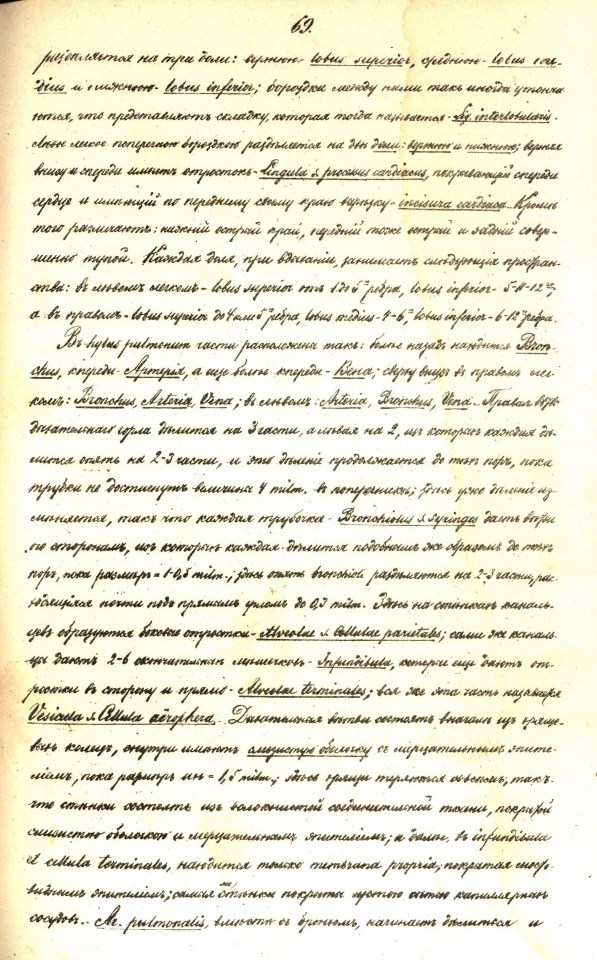 69.
раздѣляется на три доли: верхнюю - lobus superior, среднюю - lobus me-
dius и нижнюю - lobus inferior; бороздки между ними такъ иногда утонча
ются, что представляютъ складку, которая тогда называется - Lig. interlobularis.
Лѣвое легкое поперечною бороздкою раздѣляется на двѣ доли: верхнюю и нижнюю; верхняя
внизу и спереди имѣетъ отростокъ - Lingula s. processus cardiacus, покрывающій спереди
сердце и имѣющій по переднему своему краю вырѣзку - incisura cardiaca. Кромѣ
того различаютъ: нижній острый край, передній тоже острый и задній совер-
шенно тупой. Каждая доля, при вдыханіи, занимаетъ слѣдующія простран-
ства: въ лѣвомъ легкомъ - lobus superior отъ 1 до 5го ребра, lobus inferior - 5-11-12го;
а въ правомъ - lobus superior до 4 или 5го ребра, lobus medius - 4-6го, lobus inferior - 6-12го ребра.
Въ hylus pulmonum части расположены такъ: болѣе назадъ находится Bron-
chus, кпереди - Артерія, а еще болѣе кпереди - Вена; сверху внизъ въ правомъ лег
комъ: Bronchus, Arteria, Vena; въ лѣвомъ: Arteria, Bronchus, Vena. Правая вѣтвь
дыхательнаго горла дѣлится на 3 части, а лѣвая на 2, изъ которыхъ каждая дѣ-
лится опять на 2-3 части, и это дѣленіе продолжается до тѣхъ поръ, пока
трубки не достигнутъ величины 4 milm. въ поперечникѣ; здѣсь уже дѣленіе из
мѣняется, такъ что каждая трубочка - Bronchiolus s. Syringes даетъ вѣтви
по сторонамъ, изъ которыхъ каждая дѣлится подобнымъ же образомъ до тѣхъ
поръ, пока размѣръ = 1-0,5 milm.; здѣсь опять bronchioli раздѣляются на 2-3 части, рас-
ходящіяся почти подъ прямымъ угломъ до 0,3 milm. Здѣсь на стѣнкахъ каналь-
цевъ образуются боковые отростки - Alveolae s. Cellulae parietales; сами же каналь-
цы даютъ 2-6 окончательныхъ мѣшечковъ - Infundibula, которые еще даютъ от-
ростки въ сторону и прямо - Alveolae terminales; вся же эта часть называется
Vesicula s. Cellula aërophera. Дыхательныя вѣтви состоятъ вначалѣ изъ хряще-
выхъ колецъ, внутри имѣютъ слизистую оболочку съ мерцательнымъ эпите-
ліемъ, пока размѣръ ихъ = 1,5 milm.; здѣсь хрящи теряются совсѣмъ, такъ-
что стѣнки состоятъ изъ волокнистой соединительной ткани, покрытой
слизистою оболочкою и мерцательнымъ эпителіемъ; и далѣе, въ infundibula
et cellula terminales, находится только membrana propria, покрытая
виднымъ эпителіемъ; самыя стѣнки покрыты густою сѣтью капиллярныхъ
сосудовъ. - Ar. pulmonalis, вмѣстѣ съ бронхомъ, начинаетъ дѣлиться и